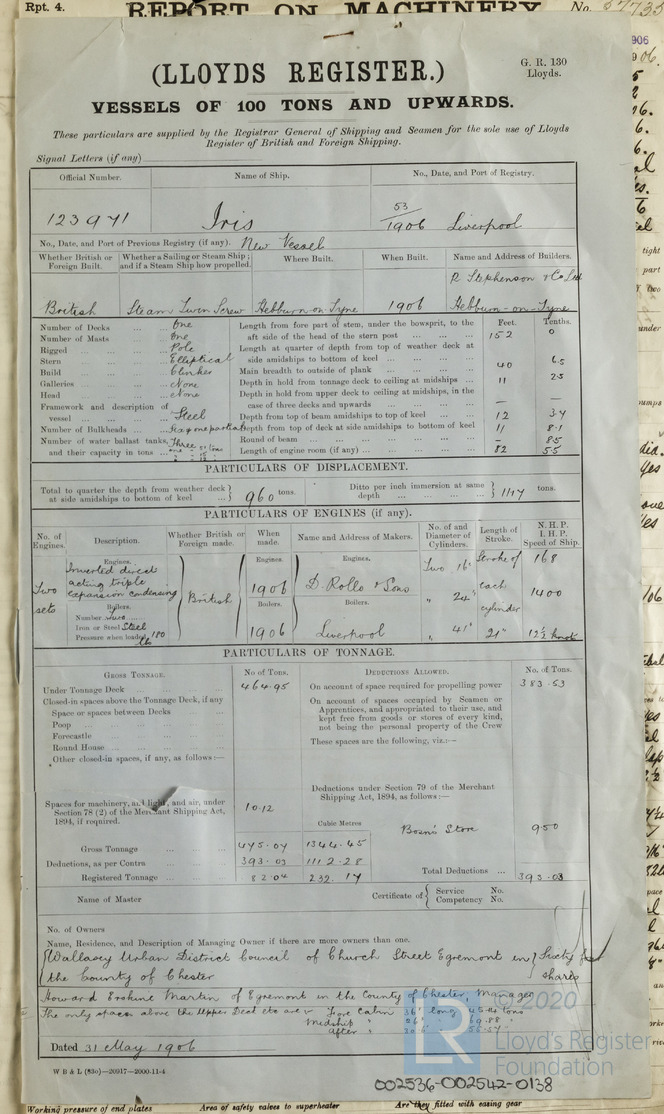 Rpt. 4. REPORT ON MACHINERY No.
(LLOYDS REGISTER.)
G. R. 130
Lloyds.
VESSELS OF 100 TONS AND UPWARDS.
These particulars are supplied by the Registrar General of Shipping and Seamen for the sole use of Lloyds
Register of British and Foreign Shipping.
Signal Letters (if any)
Official Number. Name of Ship. No., Date, and Port of Registry.
123971 Iris 53/1906 Liverpool
No., Date, and Port of Previous Registry (if any). New Vessel
Whether British or Foreign Built. Whether a Sailing or Steam Ship; and if a Steam Ship how propelled. Where Built. When Built. Name and Address of Builders.
British Steam Twin Screw Hebburn-on-Tyne 1906 R Stephenson & Co Ltd Hebburn-on-Tyne
Feet. Tenths.
Number of Decks One
Number of Masts One
Rigged Pole
Stern Elliptical
Build Clinker
Galleries None
Head None
Framework and description of vessel Steel
Number of Bulkheads Six & one partial
Number of water ballast tanks, and their capacity in tons Three
Length from fore part of stem, under the bowsprit, to the aft side of the head of the stern post 152 0
Length at quarter of depth from top of weather deck at side amidships to bottom of keel
Main breadth to outside of plank 40 6.5
Depth in hold from tonnage deck to ceiling at midships 11 25
Depth in hold from upper deck to ceiling at midships, in the case of three decks and upwards — —
Depth from top of beam amidships to top of keel 12 3.4
Depth from top of deck at side amidships to bottom of keel 11 8.1
Round of beam — 85
Length of engine room (if any) 82 55
PARTICULARS OF DISPLACEMENT.
Total to quarter the depth from weather deck at side amidships to bottom of keel 960 tons. Ditto per inch immersion at same depth 11.17 tons.
PARTICULARS OF ENGINES (if any).
No. of Engines. Description. Whether British or Foreign made. When made. Name and Address of Makers. No. of and Diameter of Cylinders. Length of Stroke. N. H. P. I. H. P. Speed of Ship.
Two sets
Engines. Inverted direct acting triple expansion condensing
Boilers.
Number Two
Iron or Steel Steel
Pressure when loaded 180 lbs
British
Engines. 1906
Boilers. 1906
Engines. D. Rollo & Sons
Boilers. Liverpool
Two 16" Stroke of 168
" 24" each 1400
cylinder
" 41" 21" 12½ knots
PARTICULARS OF TONNAGE.
GROSS TONNAGE. No of Tons. DEDUCTIONS ALLOWED. No. of Tons.
Under Tonnage Deck 464.95
Closed-in spaces above the Tonnage Deck, if any
Space or spaces between Decks
Poop
Forecastle
Round House
Other closed-in spaces, if any, as follows:—
Spaces for machinery, and light, and air, under Section 78 (2) of the Merchant Shipping Act, 1894, if required. 10.12
Cubic Metres
Gross Tonnage 475.07 1344.45
Deductions, as per Contra 393.03 1112.28
Registered Tonnage 82.04 232.17
On account of space required for propelling power 383.53
On account of spaces occupied by Seamen or
Apprentices, and appropriated to their use, and
kept free from goods or stores of every kind,
not being the personal property of the Crew
These spaces are the following, viz.:—
Deductions under Section 79 of the Merchant
Shipping Act, 1894, as follows:—
Bosn's Store 9.50
Total Deductions 393.03
Name of Master
Certificate of { Service No.
Competency No.
No. of Owners
Name, Residence, and Description of Managing Owner if there are more owners than one.
Wallasey Urban District Council of Church Street Egremont in the County of Chester } Sixty four shares
Howard Erskine Martin of Egremont in the County of Chester, Manager
The only spaces above the Upper Deck etc are Fore Cabin 36' long 45.40 tons
Midship
After
Dated 31 May 1906
W B & L (83o)—20917—2000-11-4
© 2020
LR
Lloyd's Register
Foundation
002536-002542-0138
Working pressure of end plates Area of safety valves to superheater Are they fitted with easing gear